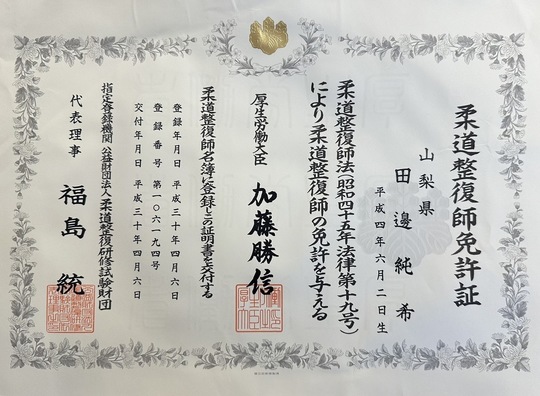 柔道整復師免許証
山梨県
田邊純希
平成四年六月二日生
柔道整復師法(昭和四十五年法律第十九号)
により柔道整復師の免許を与える
厚生労働大臣 加藤勝信
柔道整復師名簿に登録しこの証明書を交付する
登録年月日 平成三十年四月六日
登録番号 第一〇六一九四号
交付年月日 平成三十年四月六日
指定登録機関 公益財団法人柔道整復研修試験財団
代表理事 福島統